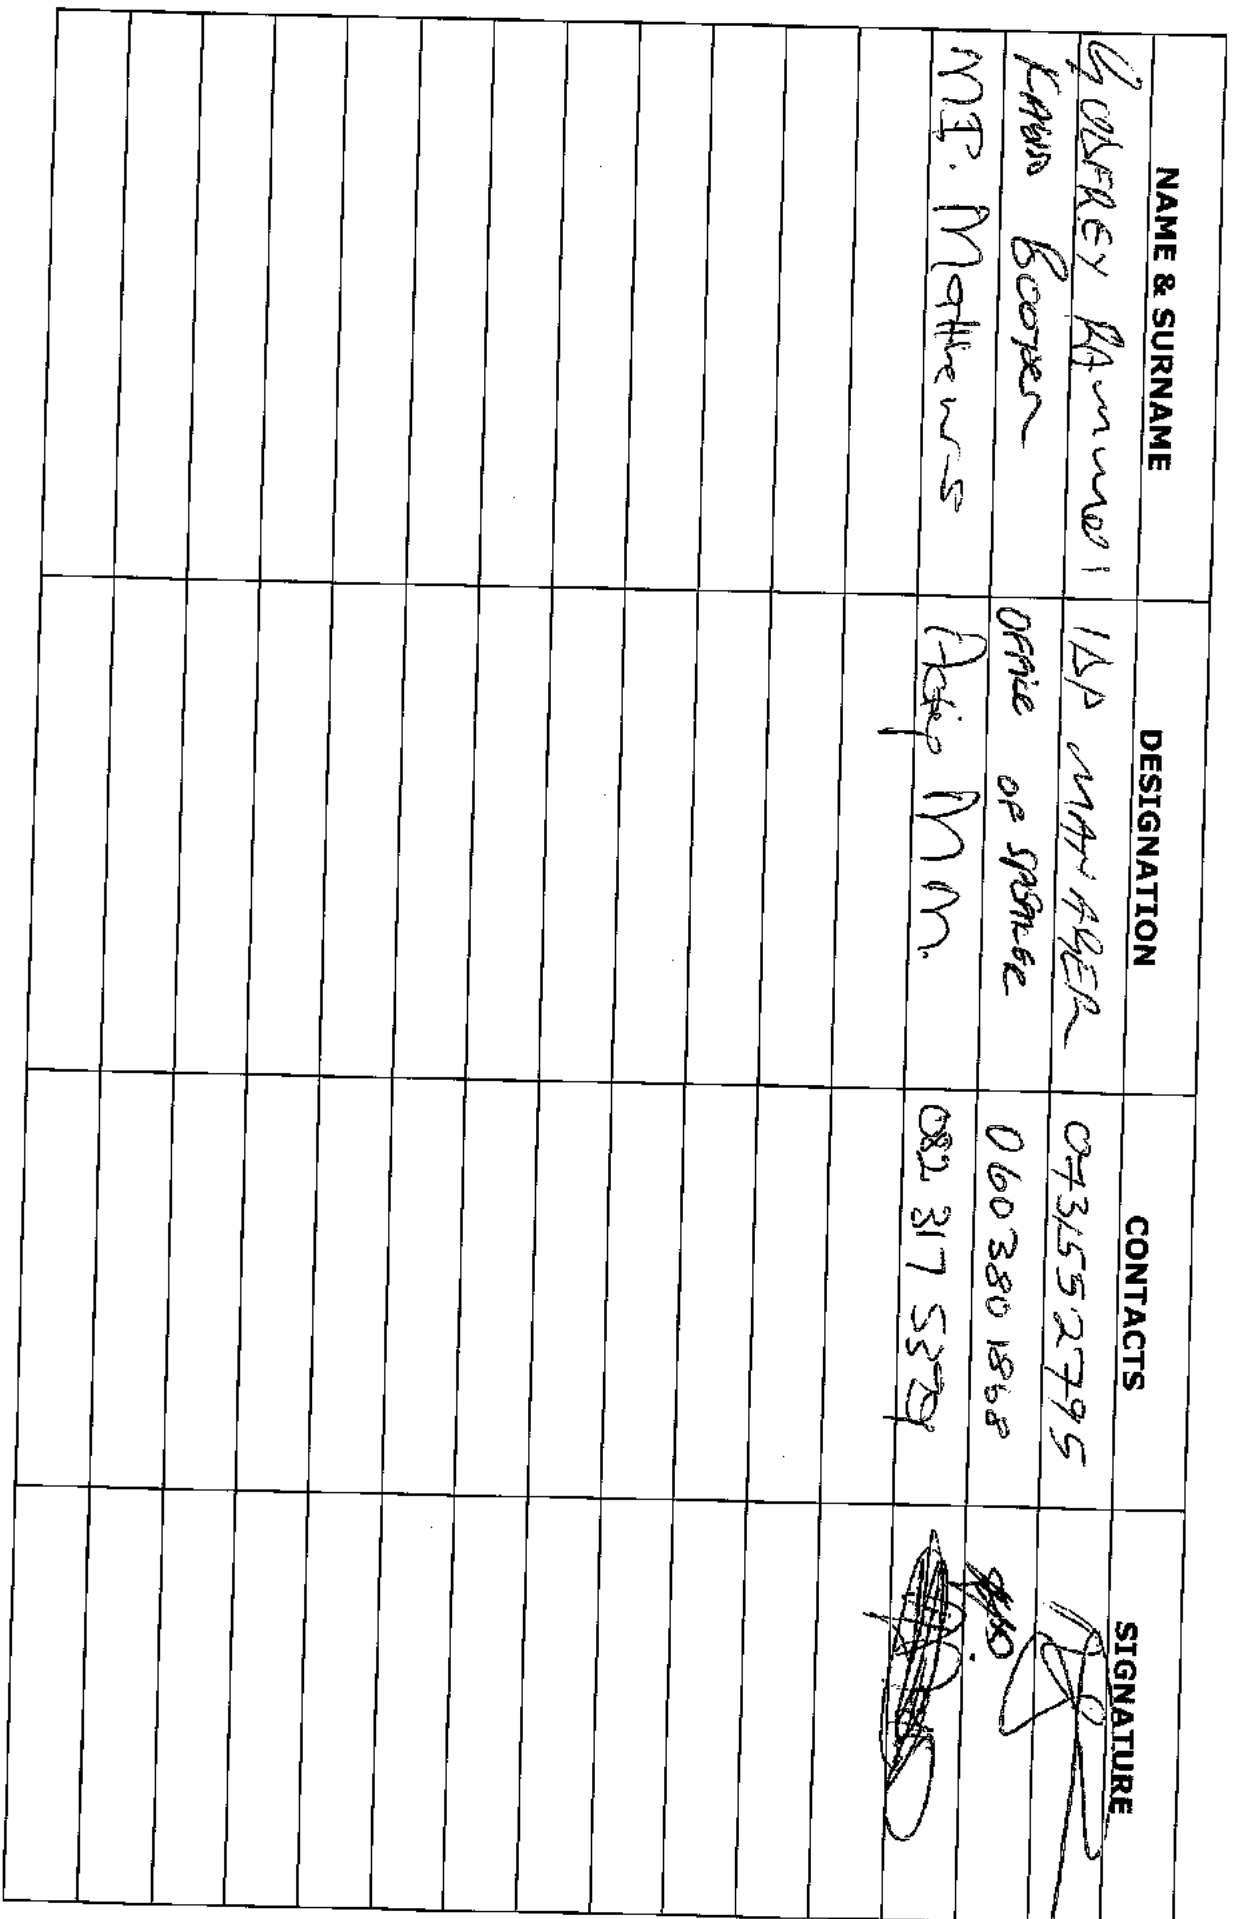 NAME & SURNAME DESIGNATION CONTACTS SIGNATURE
GODFREY RAMMOI IDP MANAGER 0731552795
Booysen OFFICE OF SPEAKER 0603801868
M.I. Matthews Acting MM. 082 317 5379